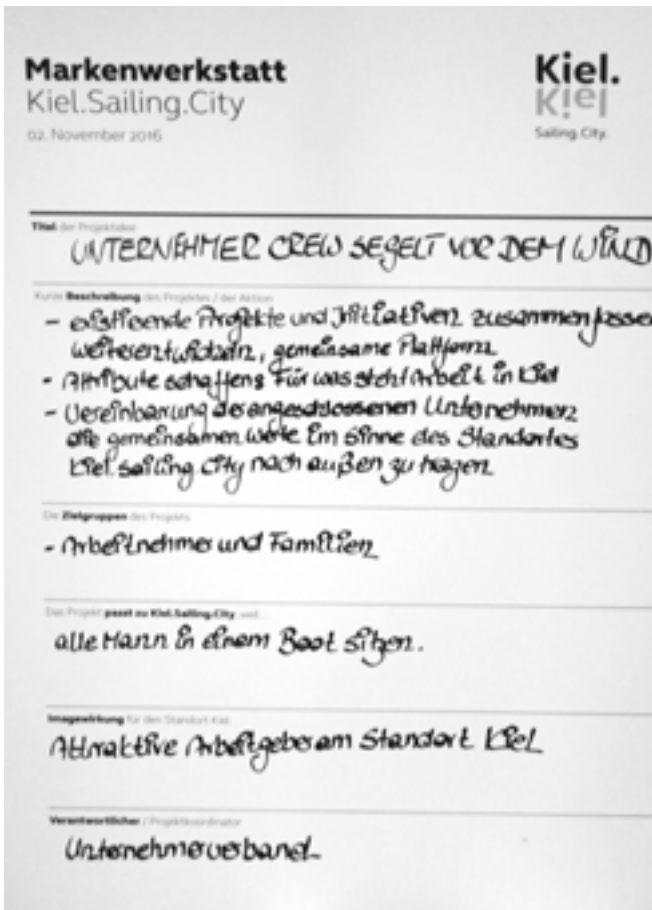 Markenwerkstatt
Kiel.Sailing.City
02. November 2016
Kiel.
Kiel
Sailing.City.
Titel der Projektidee
UNTERNEHMER CREW SEGELT VOR DEM WIND
Kurze Beschreibung des Projektes / der Aktion
- existierende Projekte und Initiativen zusammenfassen
weiterentwickeln, gemeinsame Plattform
- Attribute schaffens Für was steht Arbeit in Kiel
- Vereinbarung der angeschlossenen Unternehmen
die gemeinsamen Werte im Sinne des Standortes
Kiel.sailing.City nach außen zu tragen
Die Zielgruppen des Projekts
- Arbeitnehmer und Familien
Das Projekt passt zu Kiel.Sailing.City weil ...
alle Mann in einem Boot sitzen.
Imagewirkung für den Standort Kiel
Attraktive Arbeitgeber am Standort Kiel
Verantwortlicher / Projektkoordinator
Unternehmerverband